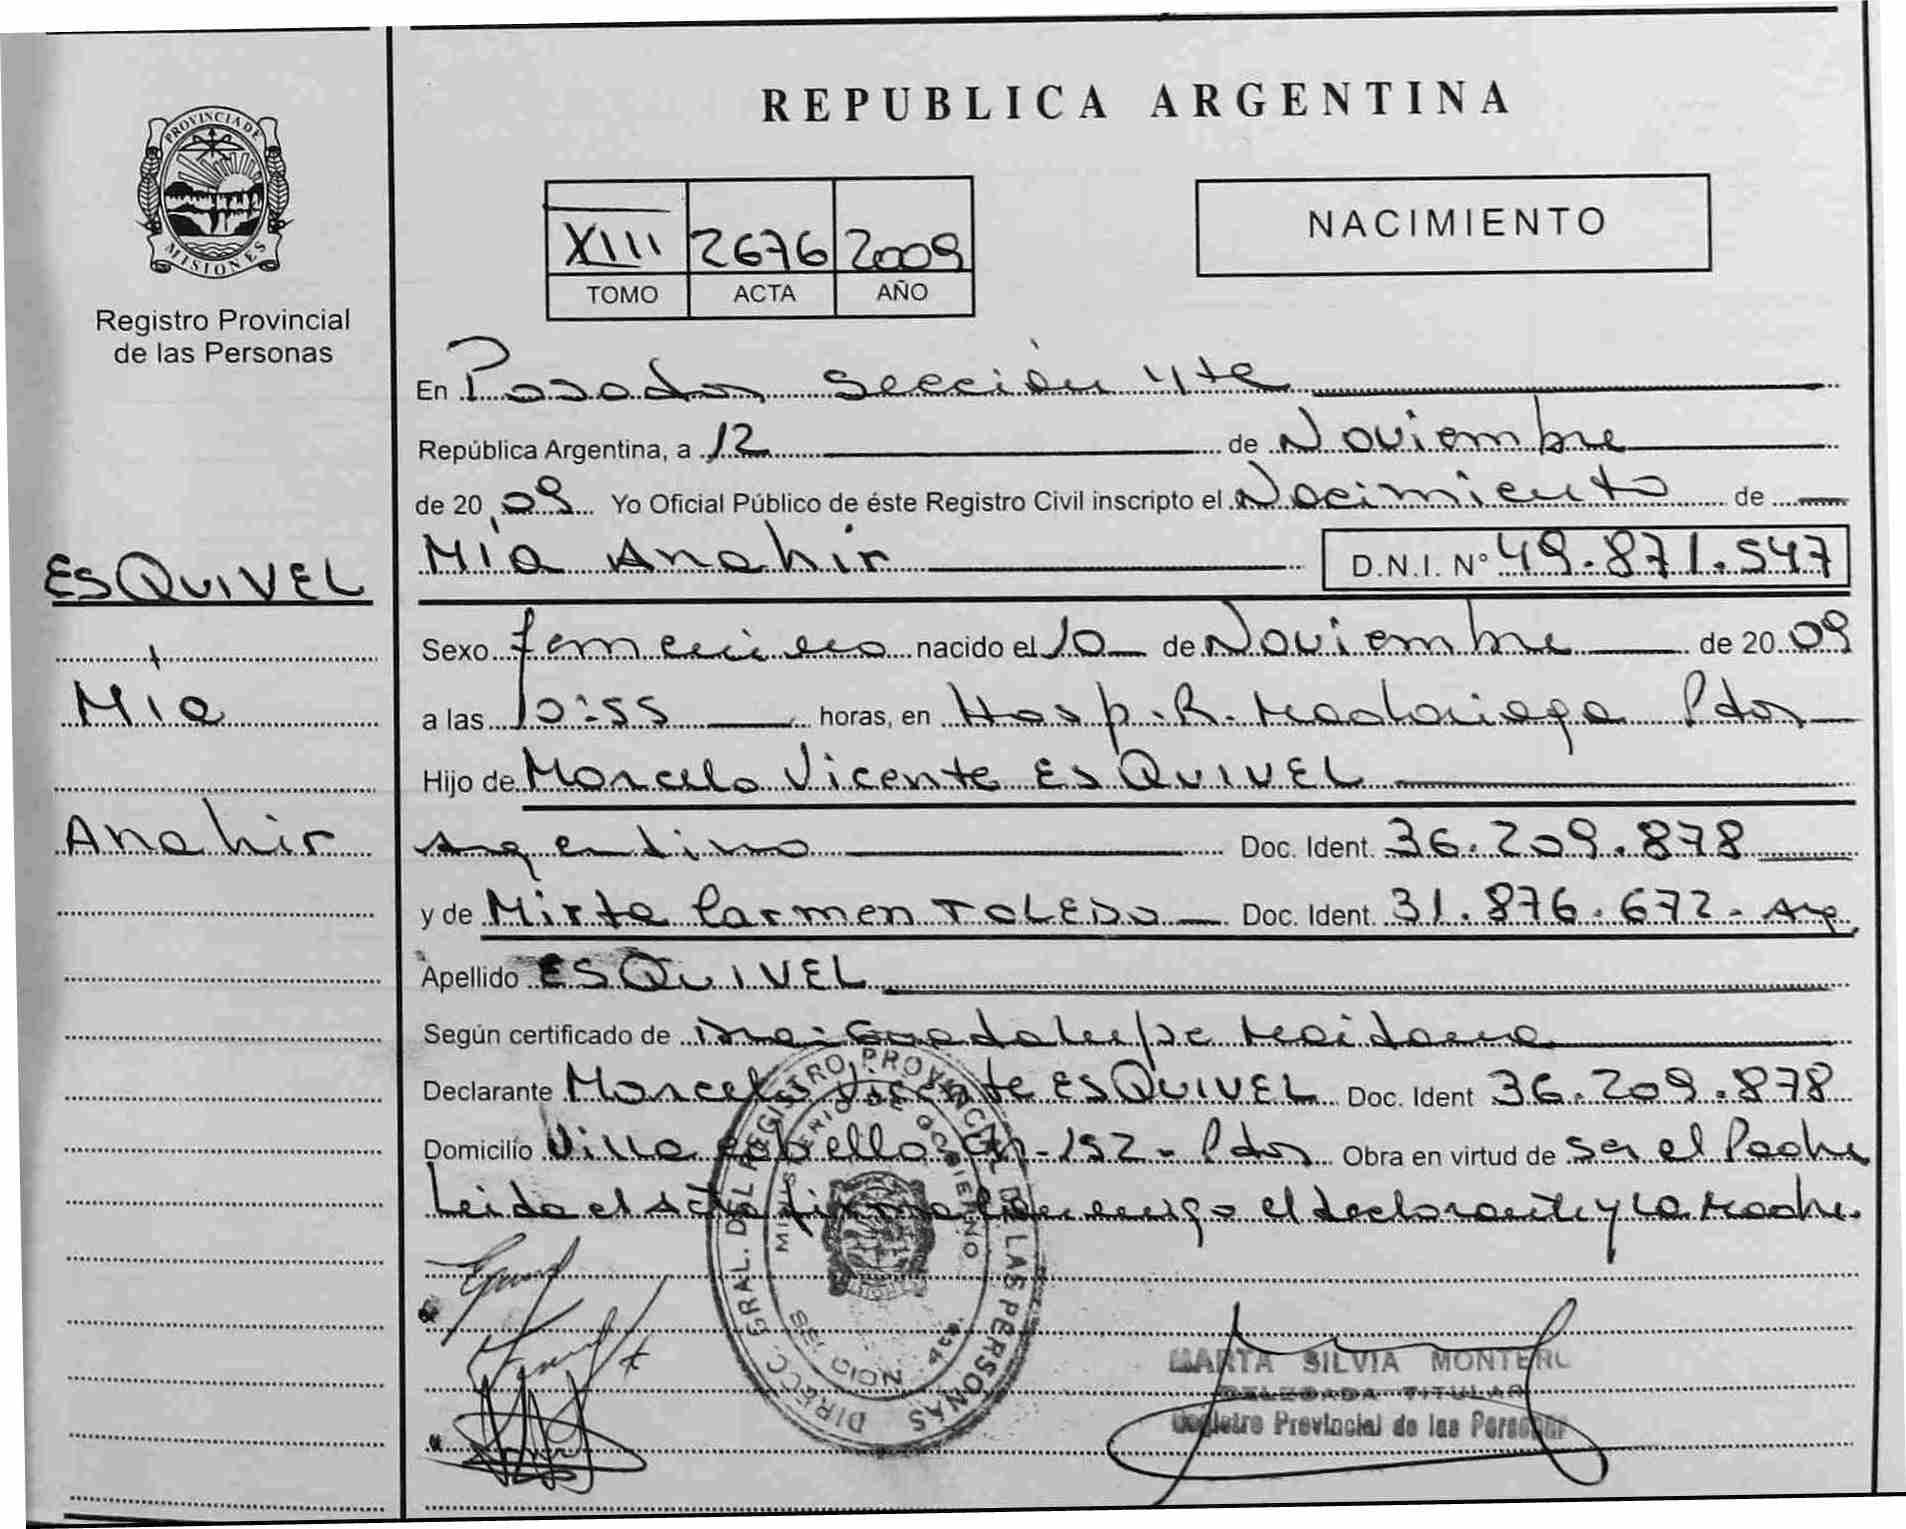 PROVINCIA DE
MISIONES
Registro Provincial
de las Personas
ESQUIVEL
Mía
Anahir
REPUBLICA ARGENTINA
XIII 2676 2009
TOMO ACTA AÑO
NACIMIENTO
En Posadas Sección 4ta
República Argentina, a 12 de Noviembre
de 20 09 Yo Oficial Público de éste Registro Civil inscripto el Nacimiento de
Mía Anahir D.N.I. N° 49.871.547
Sexo femenino nacido el 10 de Noviembre de 20 09
a las 10:55 horas, en Hosp. R. Madariaga Pdas
Hijo de Marcelo Vicente ESQUIVEL
Argentino Doc. Ident. 36.209.878
y de Mirta Carmen TOLEDO Doc. Ident. 31.876.672 - Arg.
Apellido ESQUIVEL
Según certificado de Guadalupe Maidana
Declarante Marcelo Vicente ESQUIVEL Doc. Ident 36.209.878
Domicilio Villa Cabello Ch-152 - Pdas Obra en virtud de ser el Padre
Leida el Acta firman conmigo el declarante y la Madre.
DIRECC. GRAL. DEL REGISTRO PROVINCIAL DE LAS PERSONAS
MINISTERIO DE GOBIERNO
SECCION 4ta.
MARTA SILVIA MONTERO
DELEGADA TITULAR
Registro Provincial de las Personas